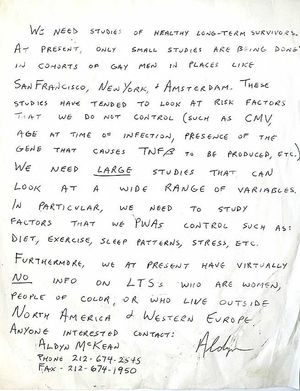 WE NEED STUDIES OF HEALTHY LONG-TERM SURVIVORS.
AT PRESENT, ONLY SMALL STUDIES ARE BEING DONE
IN COHORTS OF GAY MEN IN PLACES LIKE
SAN FRANCISCO, NEW YORK, & AMSTERDAM. THESE
STUDIES HAVE TENDED TO LOOK AT RISK FACTORS
THAT WE DO NOT CONTROL (SUCH AS CMV,
AGE AT TIME OF INFECTION, PRESENCE OF THE
GENE THAT CAUSES TNFβ TO BE PRODUCED, ETC.)
WE NEED LARGE STUDIES THAT CAN
LOOK AT A WIDE RANGE OF VARIABLES.
IN PARTICULAR, WE NEED TO STUDY
FACTORS THAT WE PWAS CONTROL SUCH AS:
DIET, EXERCISE, SLEEP PATTERNS, STRESS, ETC.
FURTHERMORE, WE AT PRESENT HAVE VIRTUALLY
NO INFO ON LTSS WHO ARE WOMEN,
PEOPLE OF COLOR, OR WHO LIVE OUTSIDE
NORTH AMERICA & WESTERN EUROPE.
ANYONE INTERESTED CONTACT:
ALDYN MCKEAN Aldyn
PHONE 212-674-2545
FAX - 212-674-1950